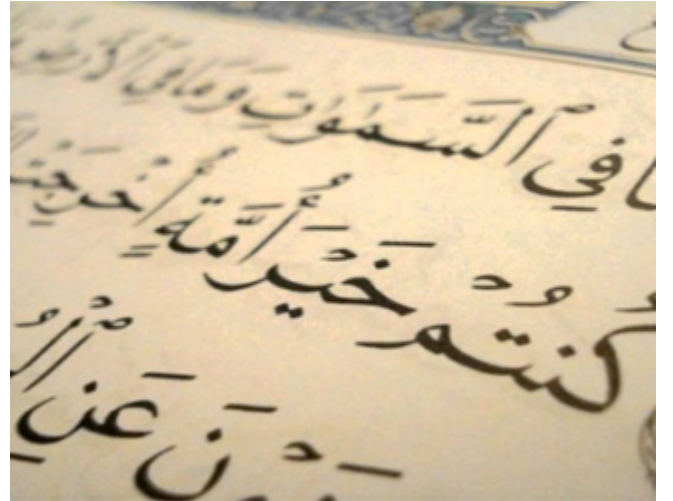 مَا فِي ٱلسَّمَٰوَٰتِ وَمَا فِي ٱلْأَرْضِ
كُنتُمْ خَيْرَ أُمَّةٍ أُخْرِجَتْ
وْنَ عَنِ ٱلْمُ